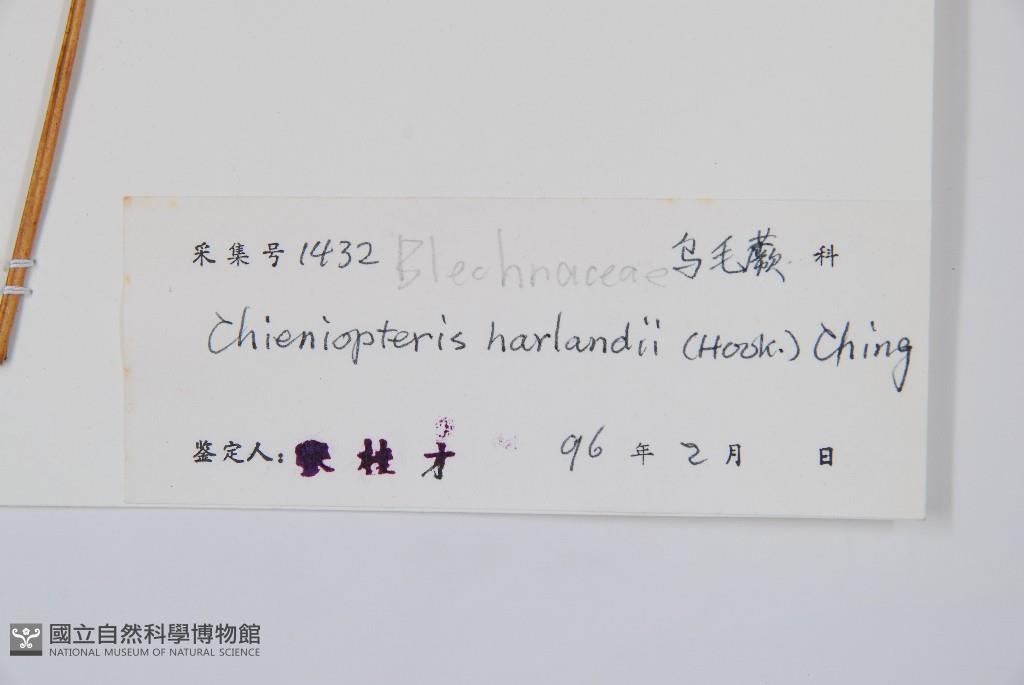 采集号 1432 Blechnaceae 乌毛蕨 科
Chieniopteris harlandii (Hook.) Ching
鉴定人: 张桂才 96 年 2 月 日
國立自然科學博物館
NATIONAL MUSEUM OF NATURAL SCIENCE